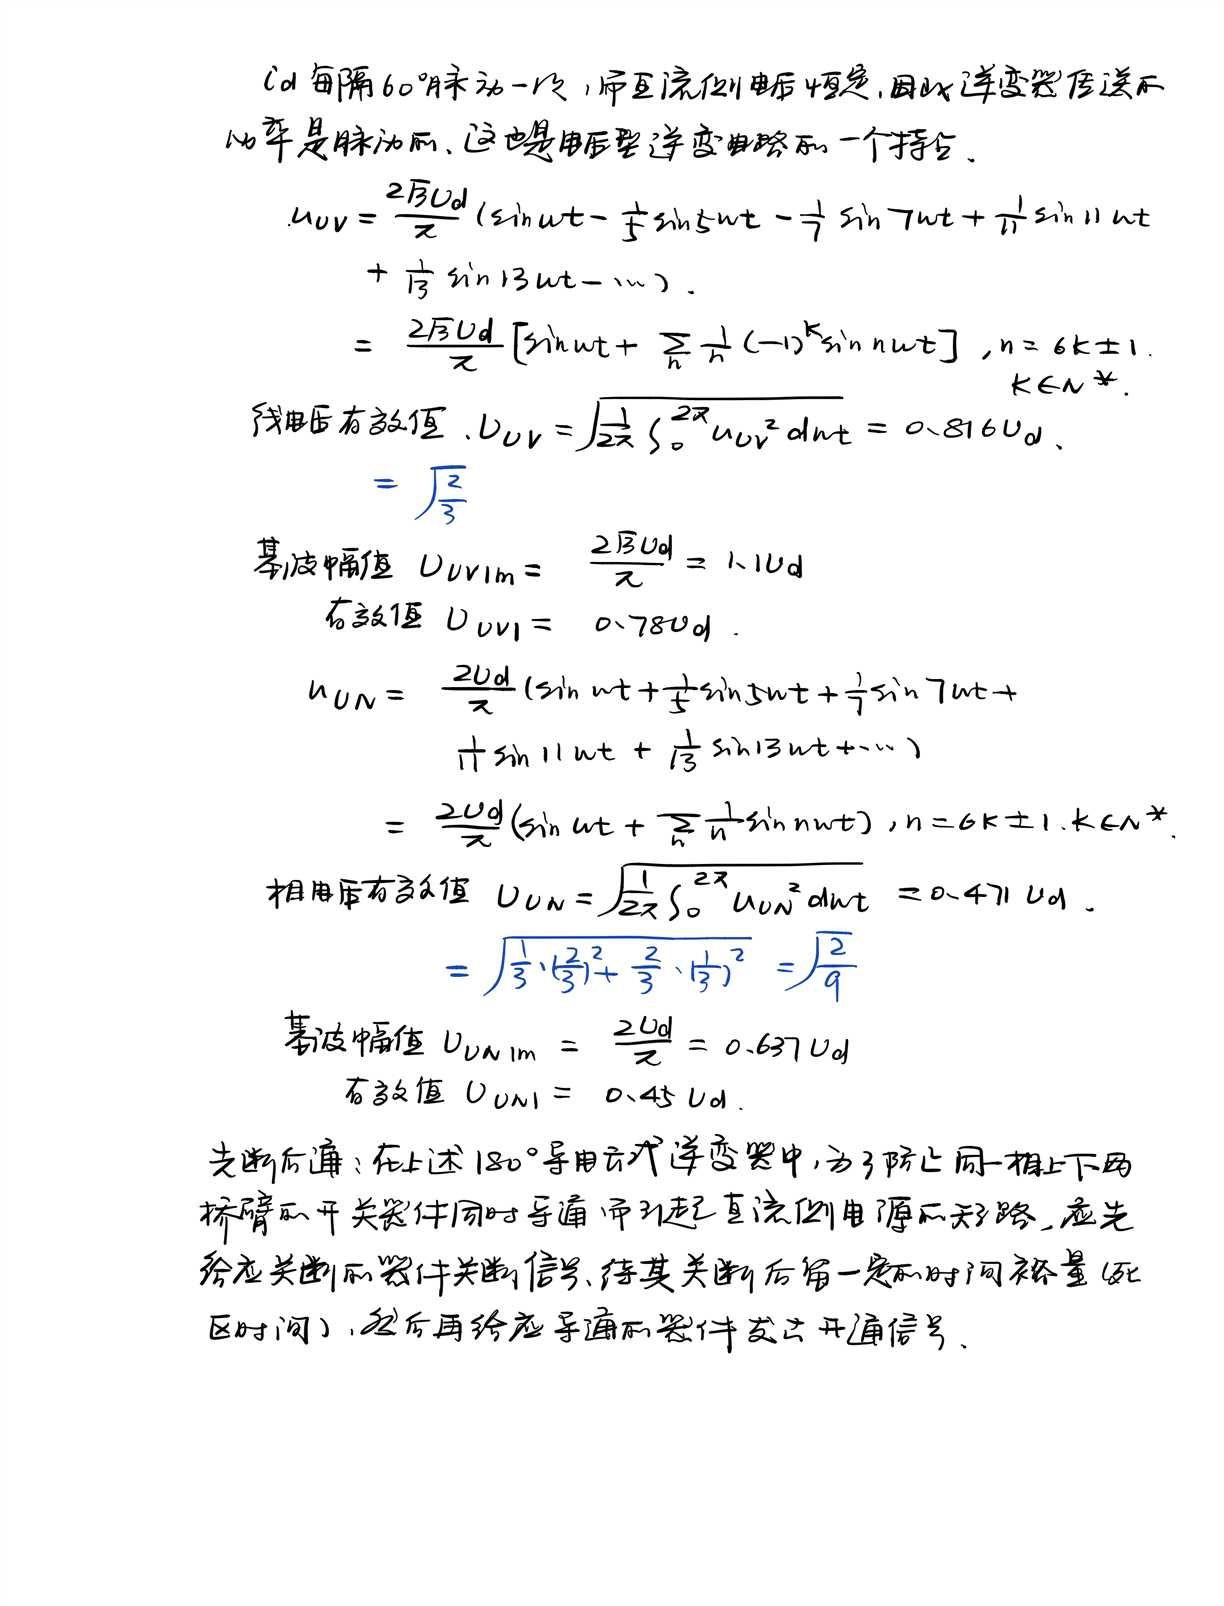 id每隔60°脉动一次,而直流侧电压恒定,因此逆变器传送的
功率是脉动的、这也是电压型逆变电路的一个特点.
u_UV = 2√3Ud/π (sinωt - 1/5 sin5ωt - 1/7 sin7ωt + 1/11 sin11ωt
+ 1/13 sin13ωt - …).
= 2√3Ud/π [sinωt + Σ_n 1/n (-1)^k sin nωt], n = 6k±1.
k∈N*.
线电压有效值. U_UV = √(1/2π ∫_0^2π u_UV² dωt) = 0.816Ud、
= √(2/3)
基波幅值 U_UV1m = 2√3Ud/π = 1.1Ud
有效值 U_UV1 = 0.78Ud.
u_UN = 2Ud/π (sin ωt + 1/5 sin5ωt + 1/7 sin7ωt +
1/11 sin11ωt + 1/13 sin13ωt + …)
= 2Ud/π (sin ωt + Σ_n 1/n sin nωt), n = 6k±1. k∈N*.
相电压有效值 U_UN = √(1/2π ∫_0^2π u_UN² dωt) = 0.471Ud.
= √(1/3·(2/3)² + 2/3·(1/3)²) = √(2/9)
基波幅值 U_UN1m = 2Ud/π = 0.637Ud
有效值 U_UN1 = 0.45Ud.
先断后通:在上述180°导电方式逆变器中,为了防止同一相上下两
桥臂的开关器件同时导通而引起直流侧电源的短路,应先
给应关断的器件关断信号、待其关断后留一定的时间裕量(死
区时间),然后再给应导通的器件发出开通信号、